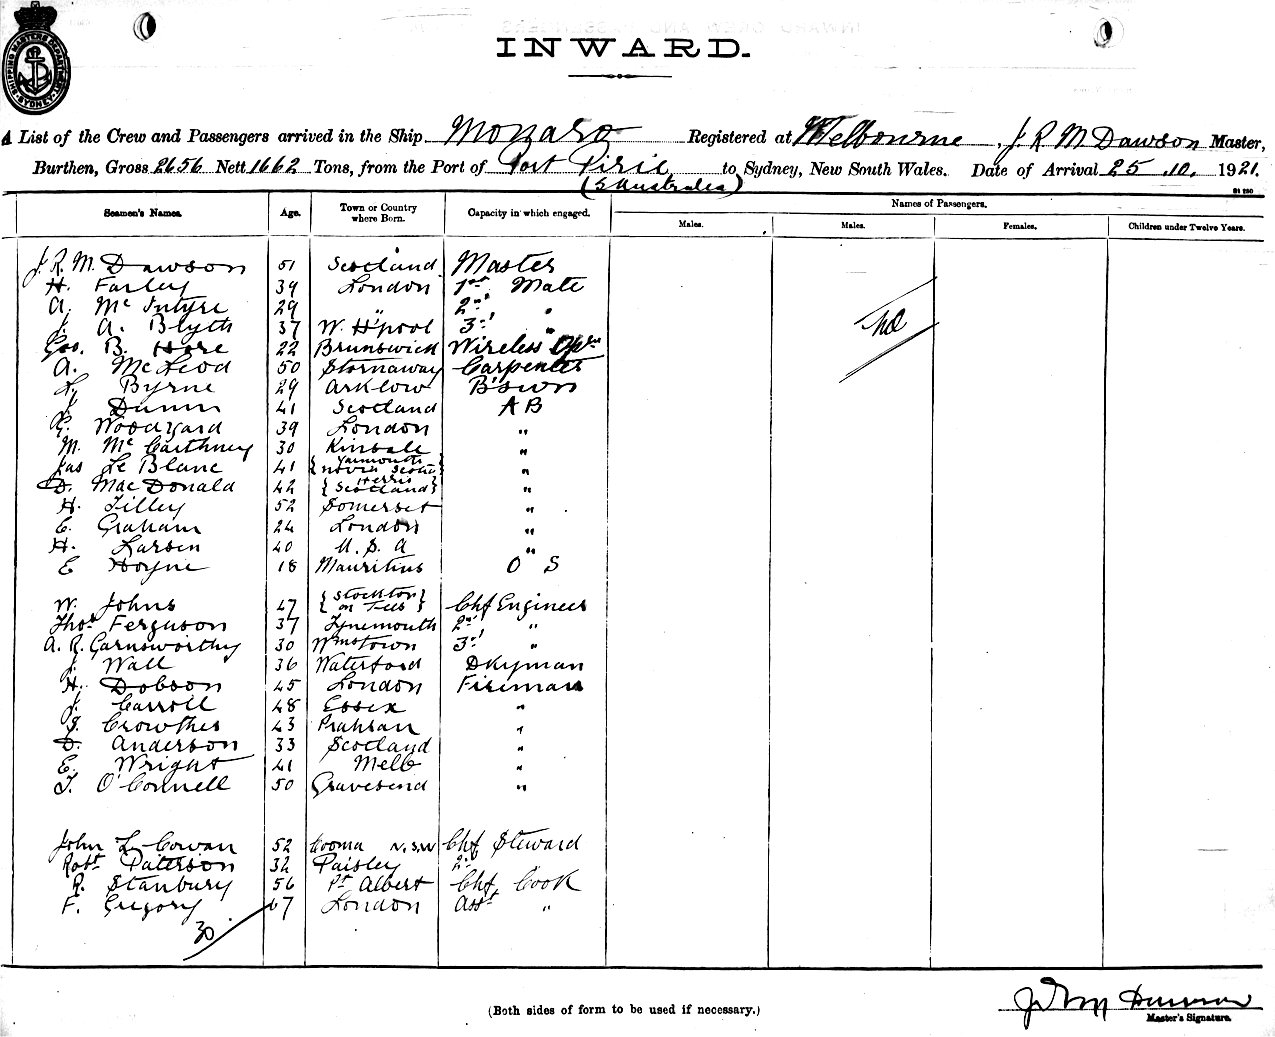 SHIPPING MASTERS DEPARTMENT SYDNEY
INWARD.
A List of the Crew and Passengers arrived in the Ship Monaro Registered at Melbourne, J. R. M Dawson Master,
Burthen, Gross 2656 Nett 1662 Tons, from the Port of Port Pirie to Sydney, New South Wales. Date of Arrival 25.10.1921.
(S Australia)
Seamen's Names. Age. Town or Country where Born. Capacity in which engaged. Names of Passengers.
Males. Males. Females. Children under Twelve Years.
J. R. M. Dawson 51 Scotland Master
H. Farley 39 London 1st Mate
A. McIntyre 29 " 2nd "
J. A. Blyth 37 W. H'pool 3rd "
Geo. B. Hore 22 Brunswick Wireless Opr
A. McLeod 50 Stornaway Carpenter
L. Byrne 29 Arklow B'swn
J. Dunn 41 Scotland A B
G. Woodyard 39 London "
M. McCarthney 30 Kinsale "
Jas Le Blanc 41 {Yarmouth Nova Scotia} "
D. MacDonald 42 {Herris Scotland} "
H. Tilley 52 Somerset "
E. Graham 24 London "
H. Larsen 40 U. S. A "
E Hoyne 18 Mauritius O S
W. Johns 47 {Stockton on Tees} Chf Engineer
Thos. Ferguson 37 Tynemouth 2nd "
A. R. Garnsworthy 30 Wmstown 3rd "
J. Wall 36 Waterford Dkyman
H. Dobson 45 London Fireman
J. Carroll 48 Essex "
J. Crowther 43 Prahran "
D. Anderson 33 Scotland "
E. Wright 41 Melb "
T. O'Connell 50 Gravesend "
John L. Cowan 52 Cooma N.S.W Chf Steward
Robt. Paterson 32 Paisley 2nd "
R. Stanbury 56 Pt Albert Chf Cook
F. Gregory 67 London Asst "
30
(Both sides of form to be used if necessary.)
J R M Dawson
Master's Signature.